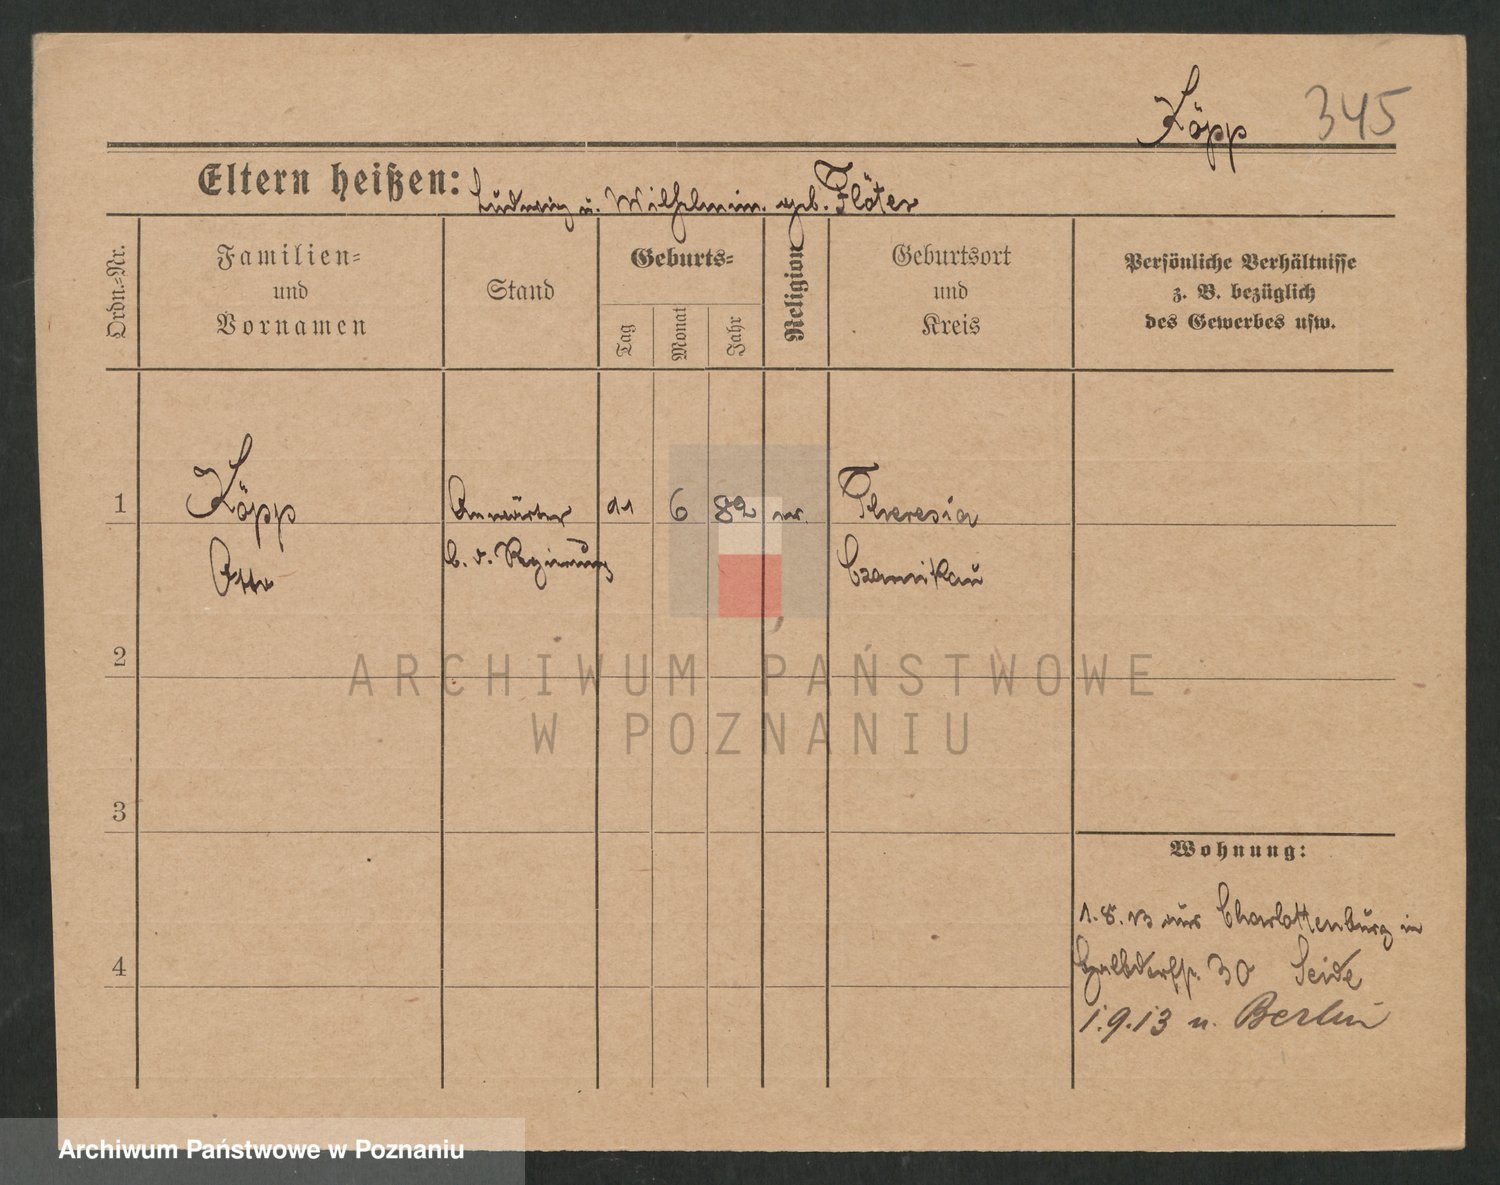 Köpp 345
Eltern heißen: Ludwig u. Wilhelmin. geb. Flöter
Ordn.=Nr.
Familien=
und
Vornamen
Stand
Geburts=
Tag
Monat
Jahr
Religion
Geburtsort
und
Kreis
Persönliche Verhältnisse
z. B. bezüglich
des Gewerbes usw.
1 Köpp Anwärter 11 6 82 ev. Theresia
Otto b. d. Regierung Czarnikau
2
ARCHIWUM PAŃSTWOWE
W POZNANIU
3
Wohnung:
1. 8. 13 aus Charlottenburg in
30 Seide
4
1.9.13 n. Berlin
Archiwum Państwowe w Poznaniu